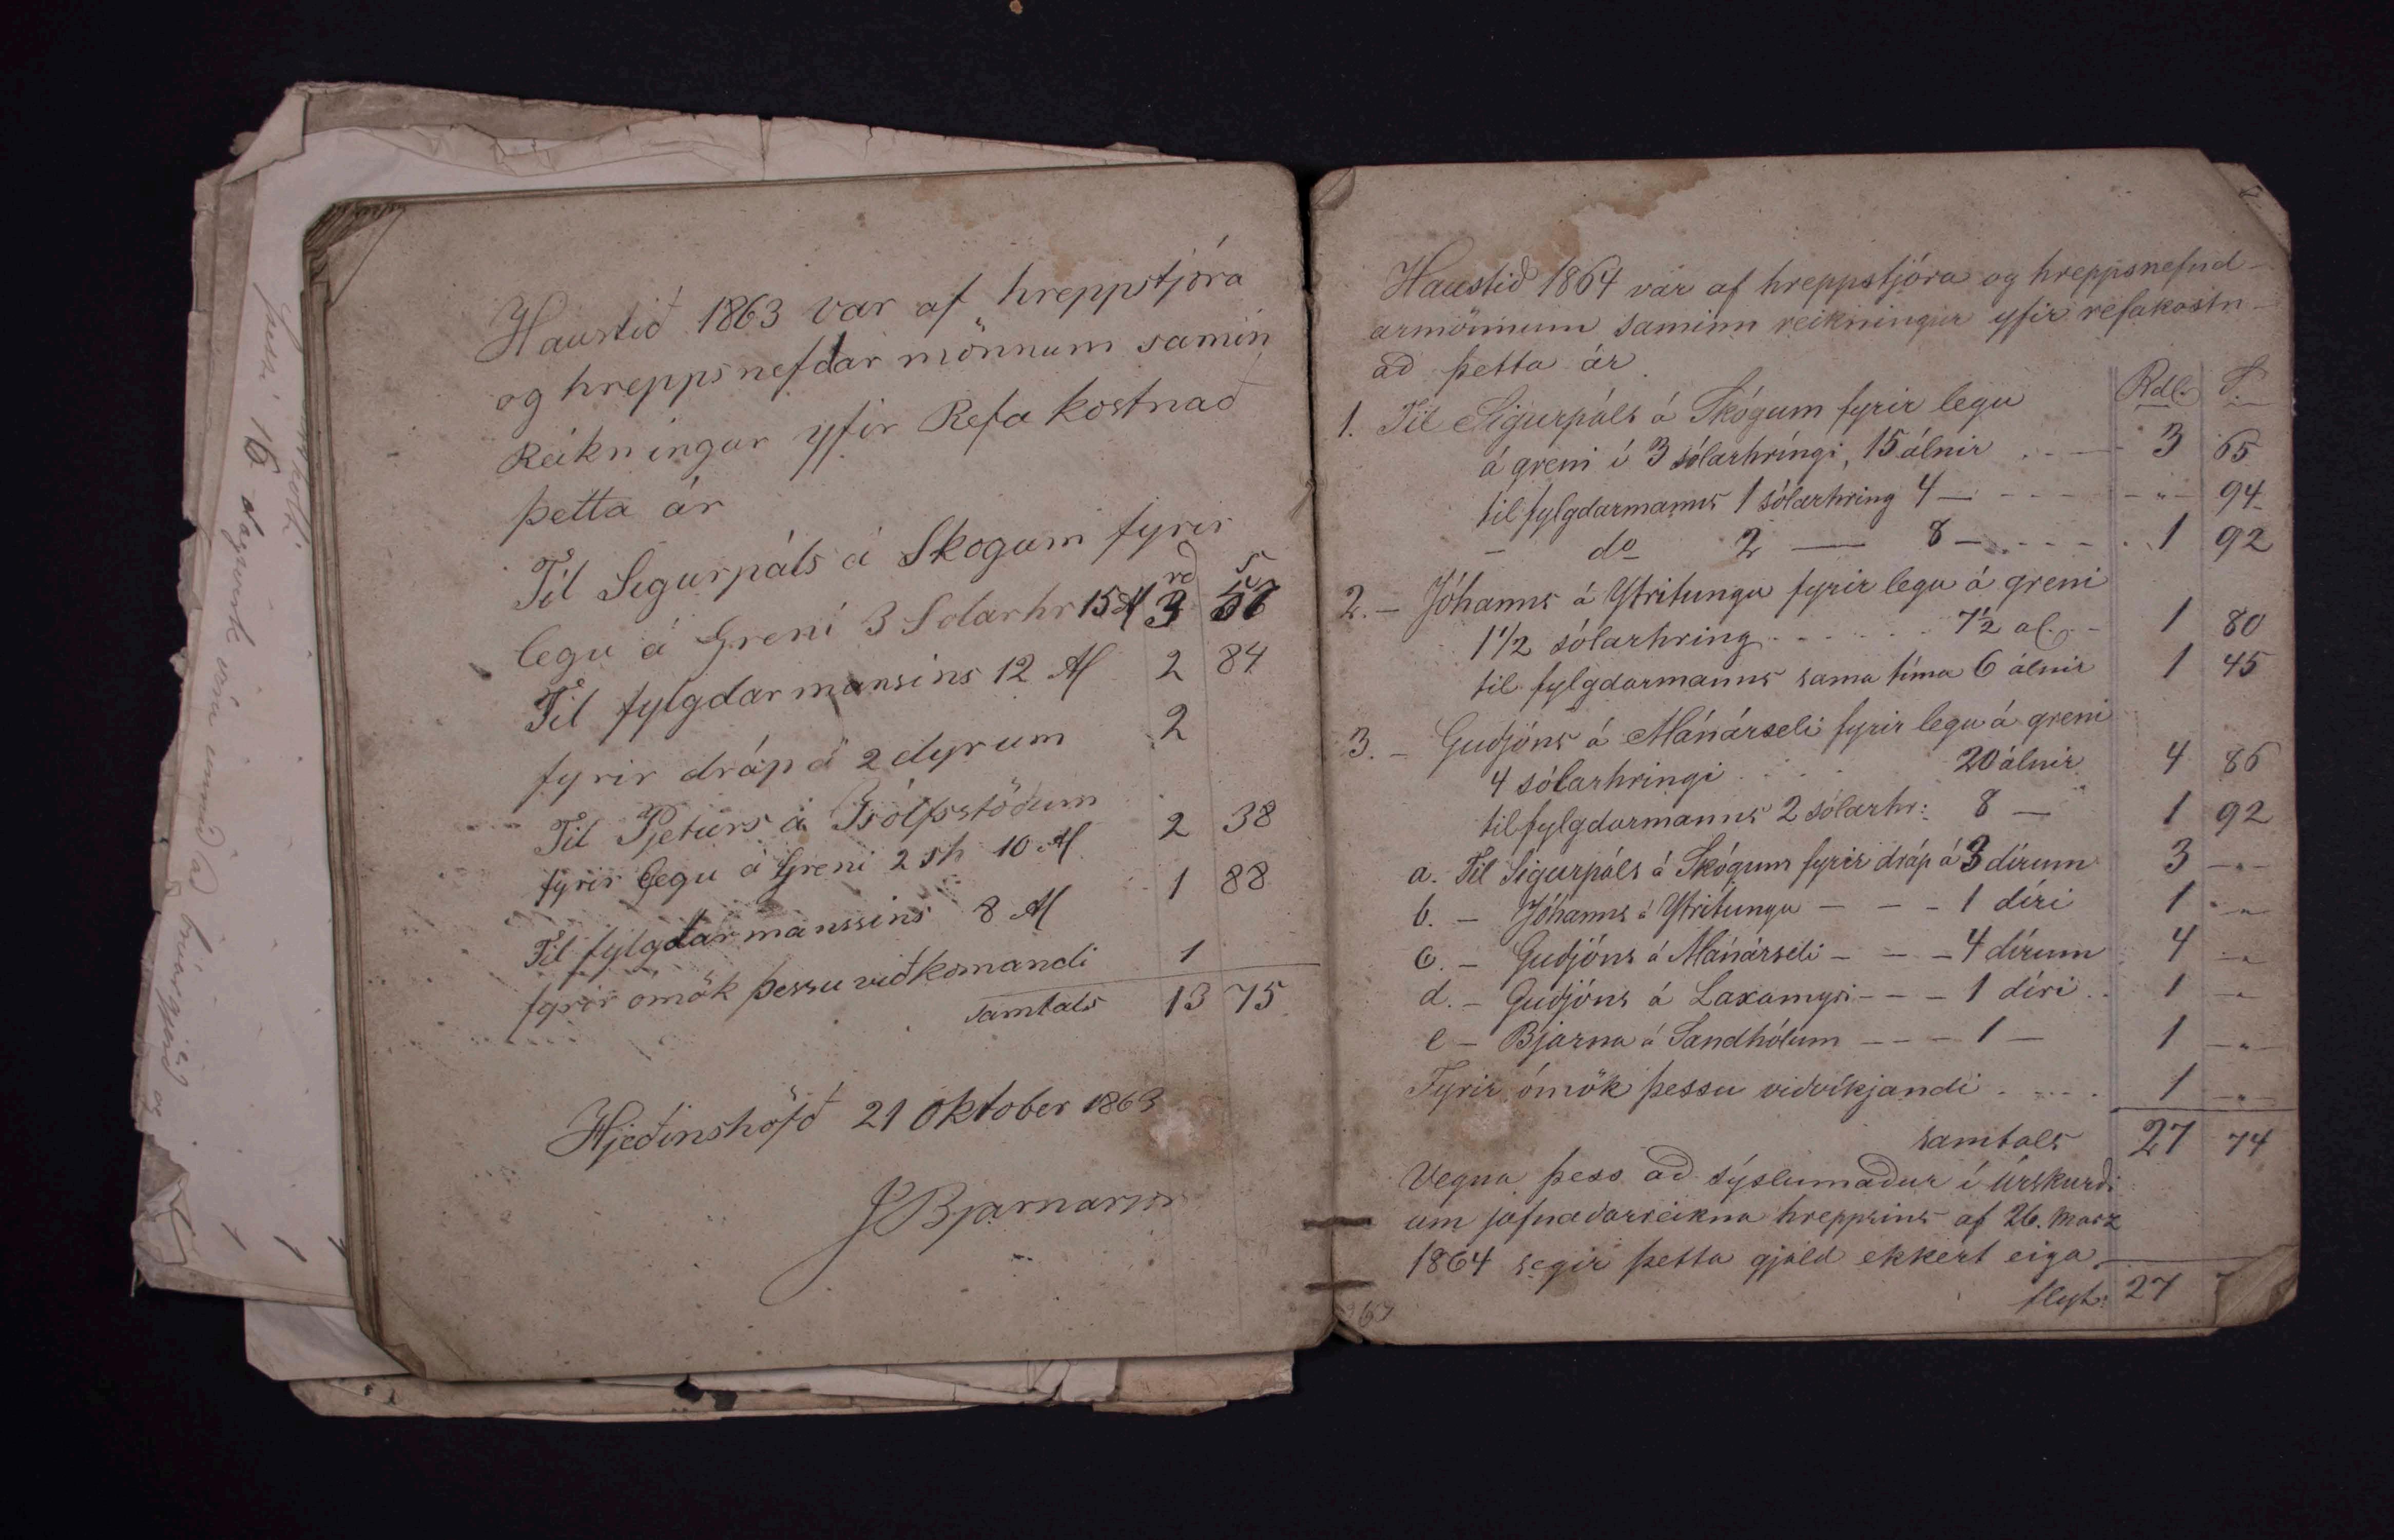 Haustið 1863 var af hreppstjóra
og hreppsnefdar mönnum samin
Reikningur yfir Refa kostnað
þetta ár
rd s
Til Sigurpáls á Skogum fyrir
legu á Greni 3 Solarhr 15 Al 3
Til fylgdarmansins 12 Al 2 84
fyrir dráp á 2 dyrum 2
Til Pjeturs á Isólfsstöðum
fyrir legu á Greni 2 sh 10 Al 2 38
Til fylgdarmanssins 8 Al 1 88
fyrir ómök þessu viðkomandi 1
samtals 13 75
Hjeðinshöfð 21 Oktober 1863
JBjarnarson
Haustið 1864 var af hreppstjóra og hreppsnefnd-
armönnum saminn reikningur yfir refakostn-
að þetta ár
Rdl. S.
1. Til Sigurpáls á Skógum fyrir legu
á greni í 3 sólarhríngi, 15 álnir . - — 3 65
til fylgdarmanns 1 sólarhring 4 — - - - - " - 94
- do 2 — 8 — . - - - 1 92
2. - Jóhanns á Ytritungu fyrir legu á greni
1 1/2 sólarhring . . . . . . 7 1/2 al. - 1 80
til fylgdarmanns sama tíma 6 álnir 1 45
3. - Guðjóns á Mánárseli fyrir legu á greni
4 sólarhringi . . . 20 álnir 4 86
til fylgdarmanns 2 sólarhr: 8 — 1 92
a. Til Sigurpáls á Skógum fyrir dráp á 3 dírum 3 - " -
b. - Jóhanns á Ytritungu - - - 1 díri 1 - " -
c. - Guðjóns á Mánárseli - - - 4 dírum 4 - " -
d. - Guðjóns á Laxamyri - - - 1 díri . . 1 - " -
e - Bjarna á Sandhólum - - - 1 — 1 - " -
Fyrir ómök þessu viðvíkjandi . . . . . 1 - " -
samtals 27 74
Vegna þess að sýslumaður í úrskurði
um jafnaðarreikna hreppsins af 26. Marz
1864 segir þetta gjald ekkert eiga
flyt: 27